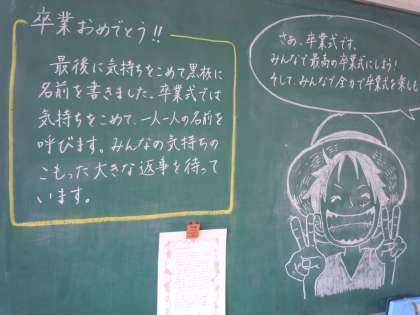 卒業おめでとう!!
最後に気持ちをこめて黒板に
名前を書きました。卒業式では
気持ちをこめて、一人一人の名前を
呼びます。みんなの気持ちの
こもった大きな返事を待って
います。
さあ、卒業式です。
みんなで最高の卒業式にしよう!
そして、みんなで全力で卒業式を楽し